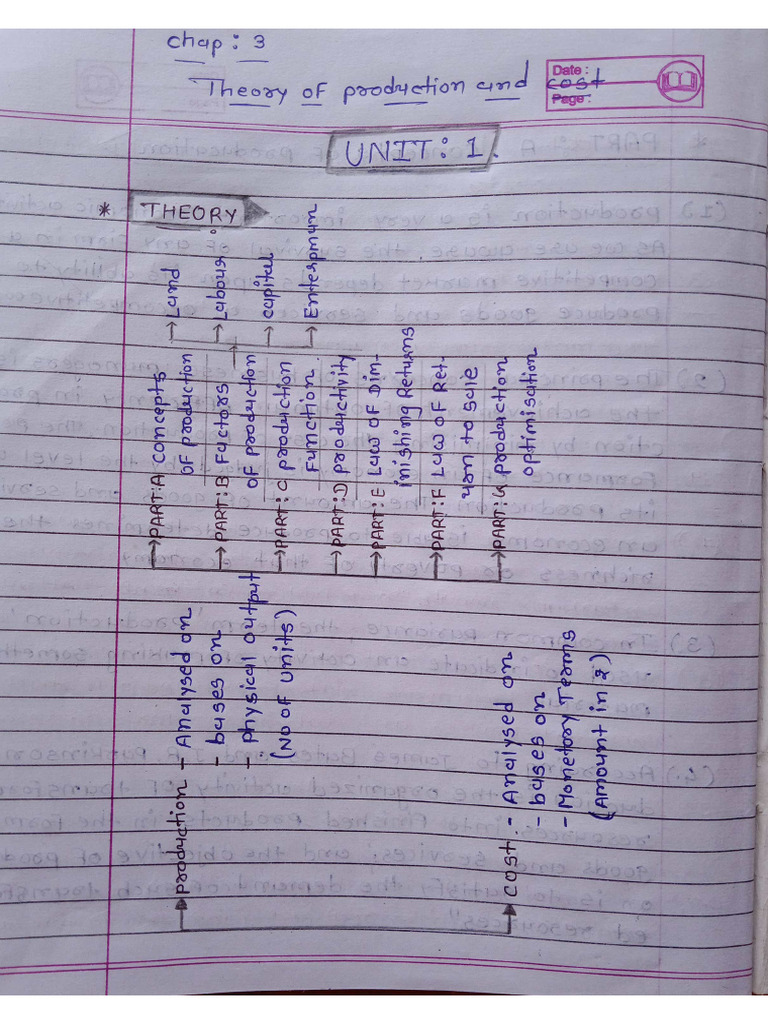 Chap: 3
Theory of production and cost
Date:
Page:
UNIT: 1.
* THEORY
production - Analysed on
- bases on
- physical output
(NO OF Units)
cost - Analysed on
- bases on
- Monetory Terms
(Amount in ₹)
PART:A concepts
OF production
PART:B Factors
OF production
Land
Labour
capital
PART:C production
Function
PART:D productivity
PART:E Law OF Dim-
inishing Returns
PART:F Law OF Ret-
urn to scale
production
optimisation